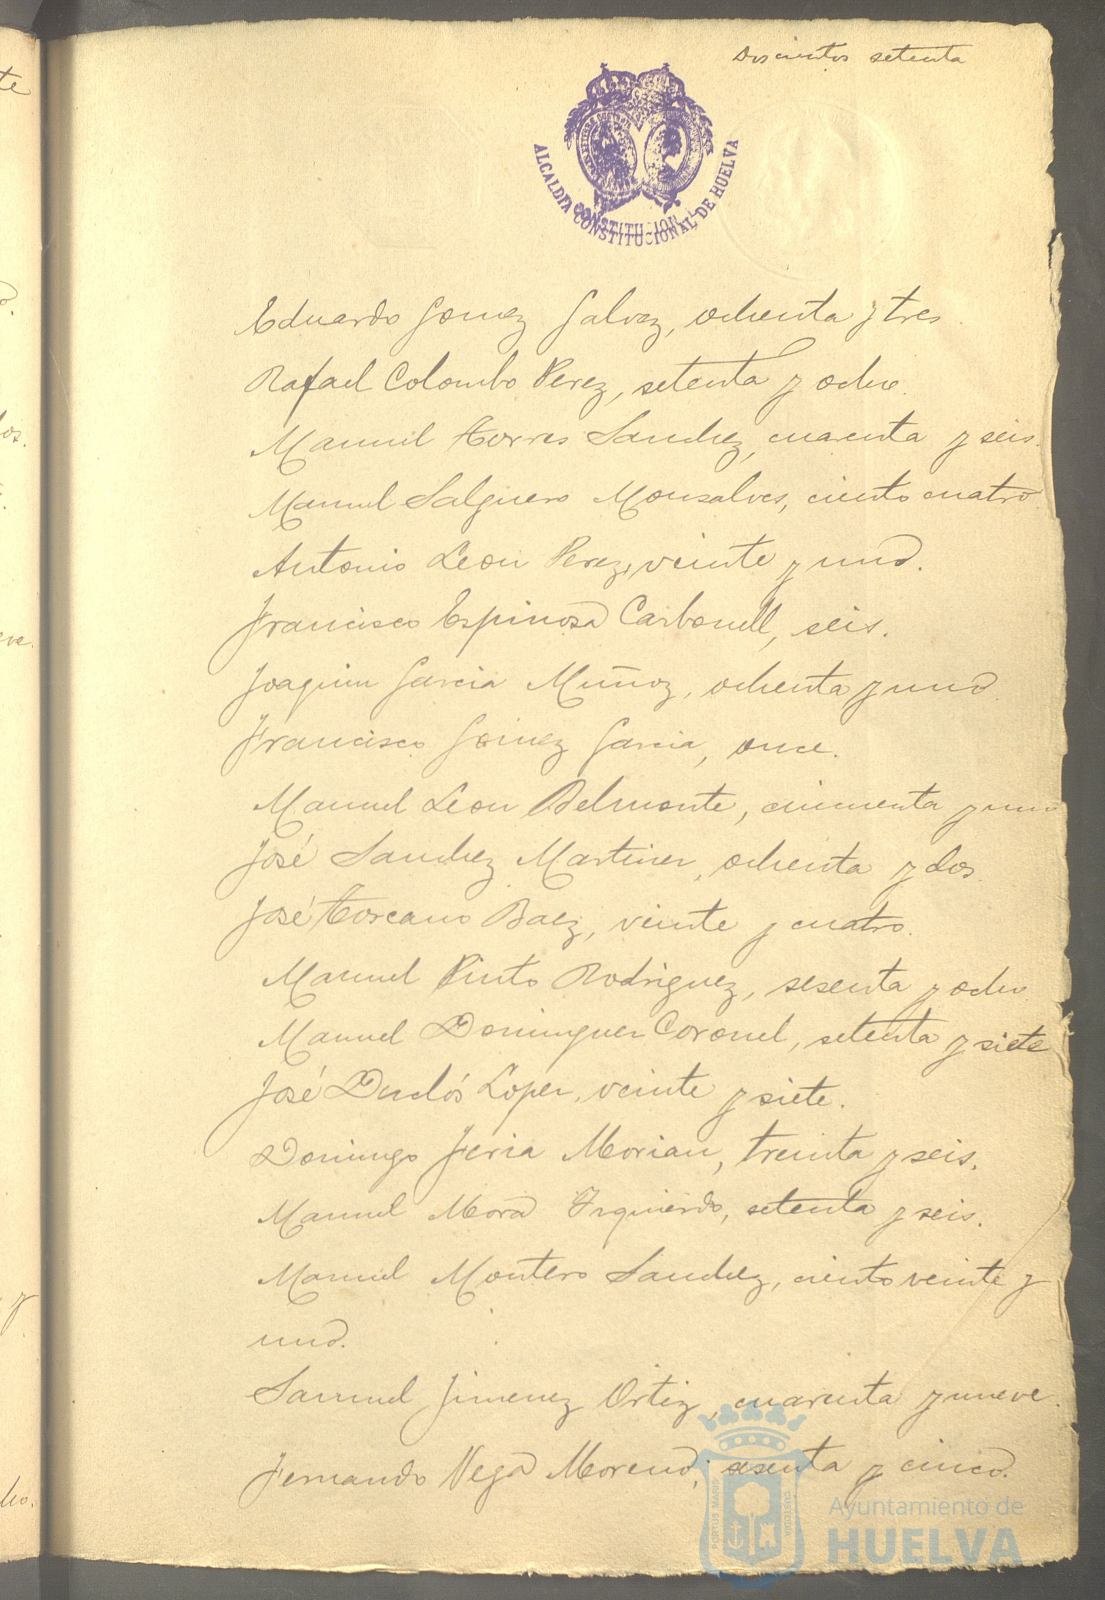 Doscientos setenta
ALCALDIA CONSTITUCIONAL DE HUELVA
Eduardo Gomez Galvez, ochenta y tres
Rafael Colombo Perez, setenta y ocho.
Manuel Torres Sanchez, cuarenta y seis.
Manuel Salguero Monsalves, ciento cuatro
Antonio Leon Perez, veinte y uno.
Francisco Espinosa Carbonell, seis.
Joaquin Garcia Muñoz, ochenta y uno
Francisco Gomez Garcia, once.
Manuel Leon Belmonte, cincuenta y uno
José Sanchez Martinez, ochenta y dos.
José Toscano Baez, veinte y cuatro.
Manuel Pinto Rodriguez, sesenta y ocho
Manuel Dominguez Coronel, setenta y siete
José Duclós Lopez, veinte y siete.
Domingo Feria Morian, treinta y seis.
Manuel Mora Izquierdo, setenta y seis.
Manuel Montero Sanchez, ciento veinte y
uno.
Samuel Jimenez Ortiz, cuarenta y nueve.
Fernando Vega Moreno, sesenta y cinco.
PORTUS MARIS CUSTODIA
Ayuntamiento de
HUELVA